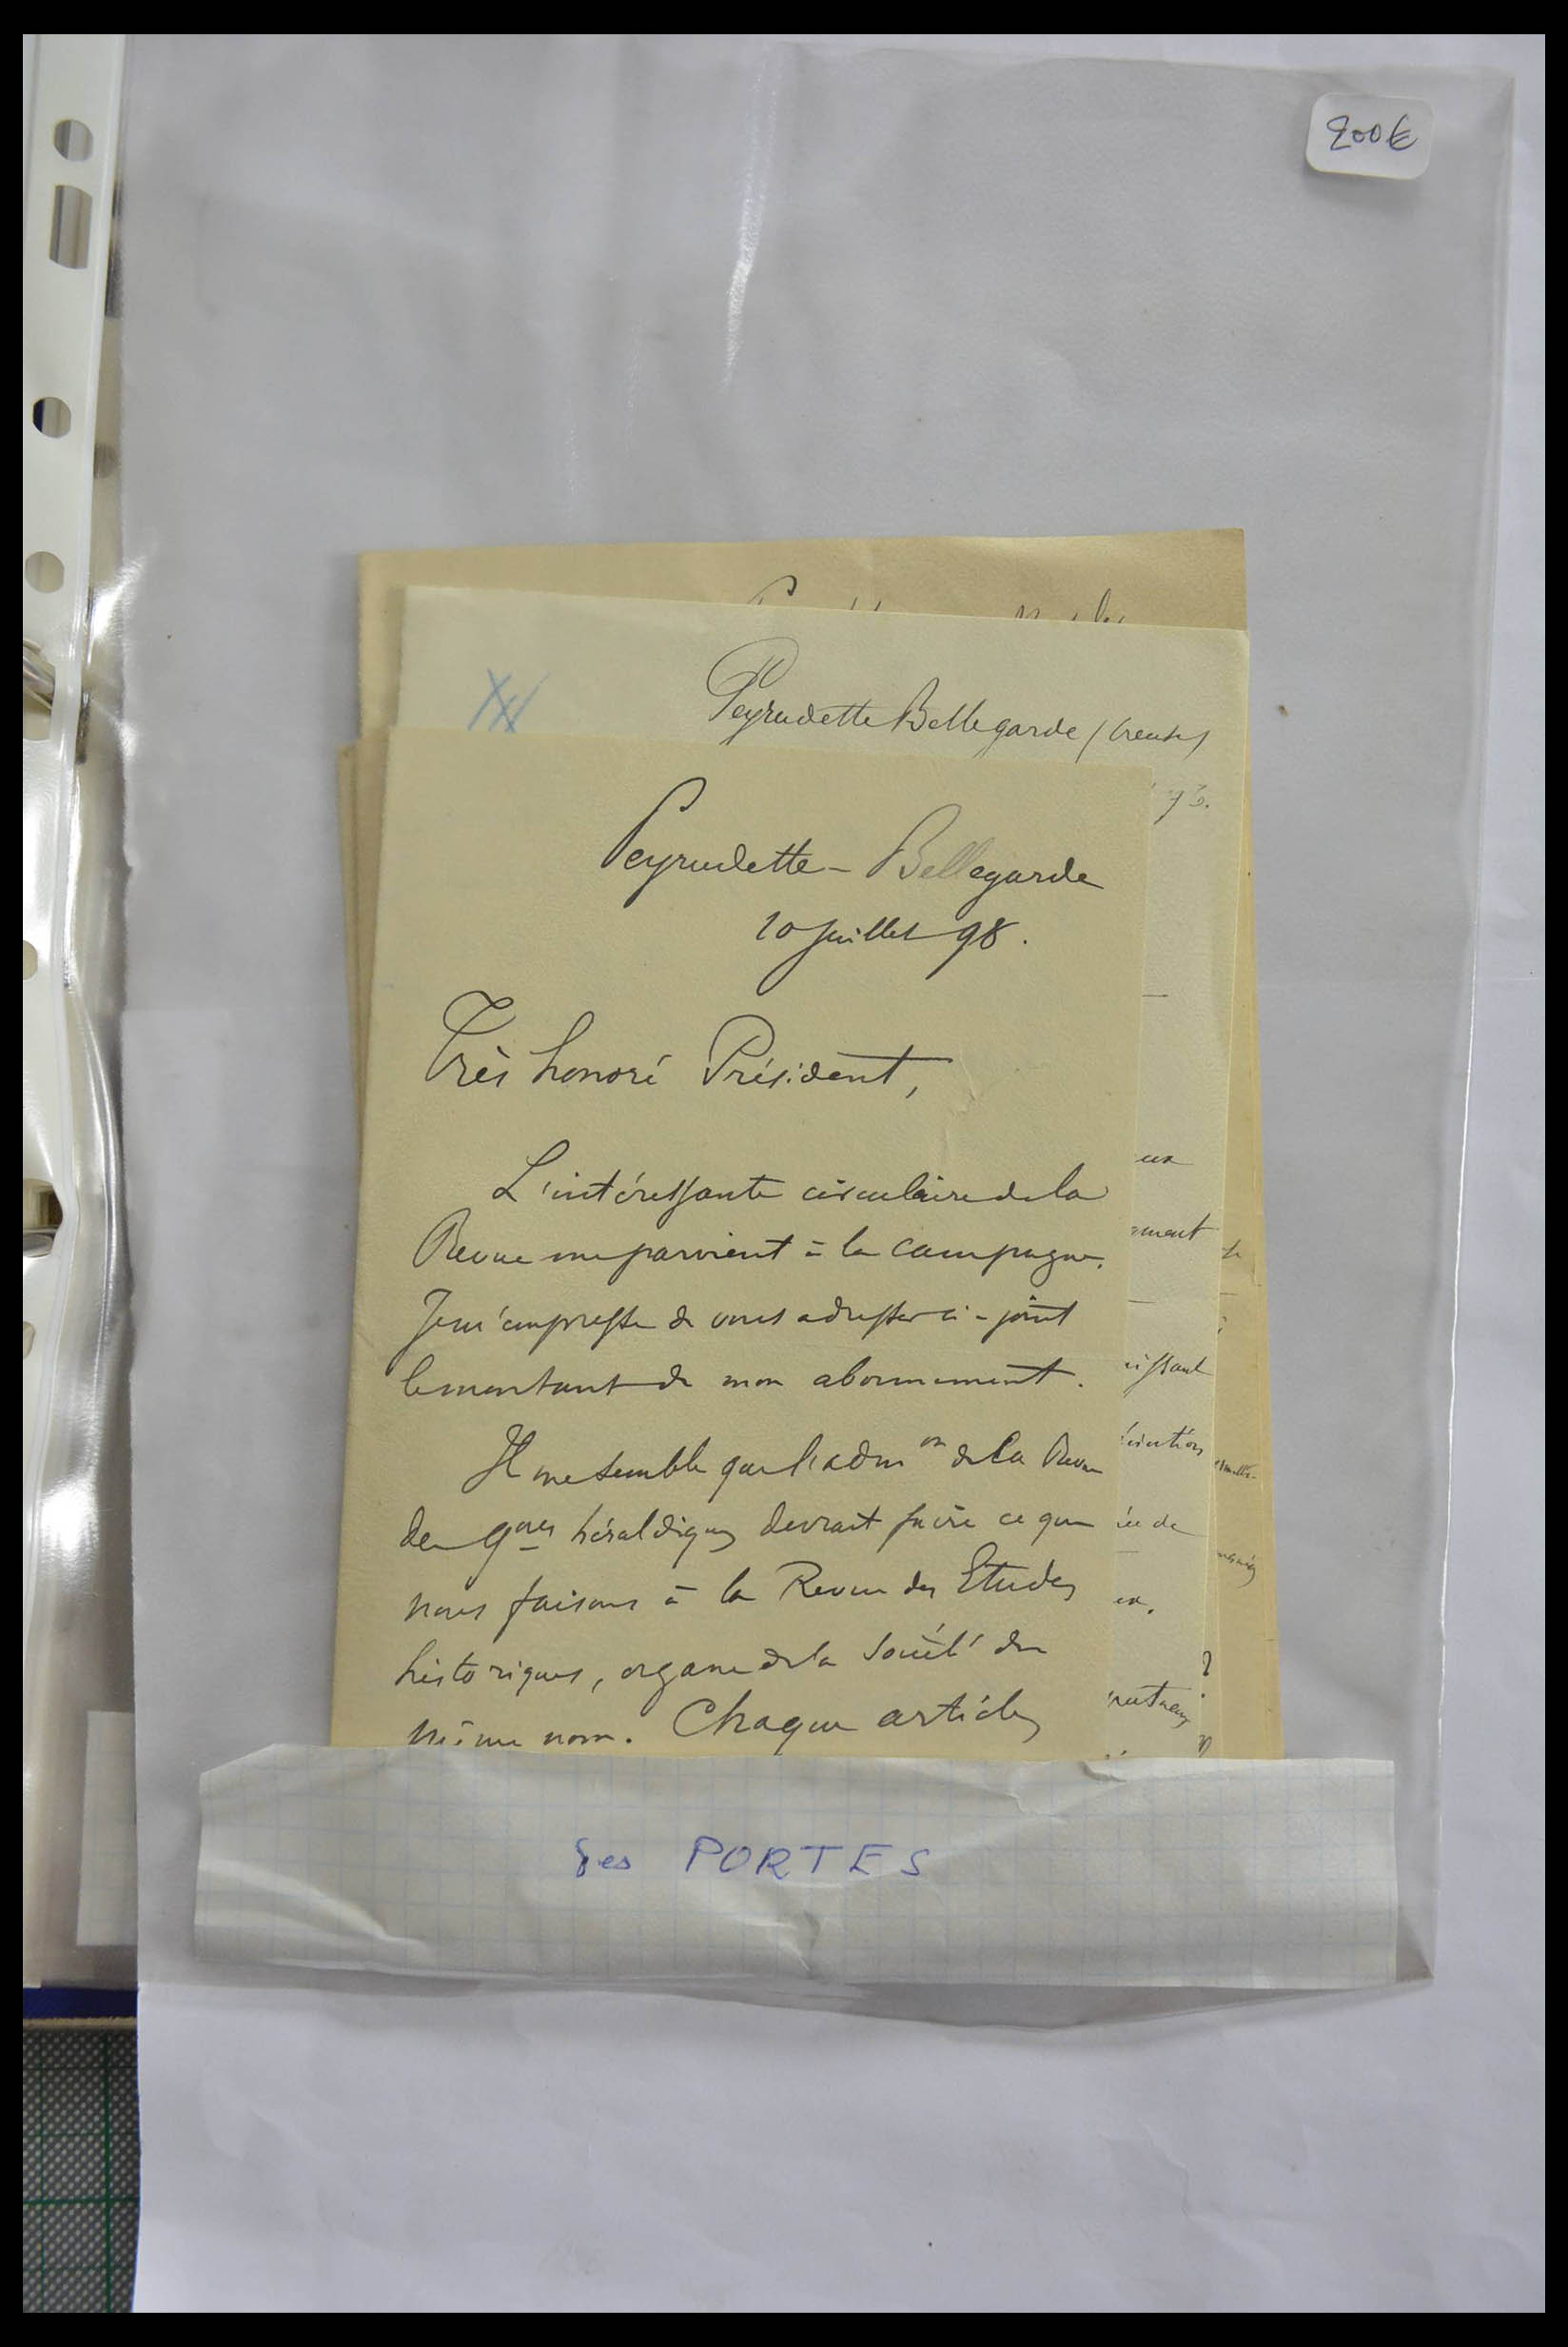 200€
Peyrudette Bellegarde (Creuse)
93.
Peyrudette - Bellegarde
10 juillet 98.
Très honoré Président,
L'intéressante circulaire de la
Revue me parvient à la campagne.
Je m'empresse de vous adresser ci-joint
le montant de mon abonnement.
Il me semble que l'admon de la Revue
des qones héraldiques devrait faire ce que
nous faisons à la Revue des Etudes
historiques, organe de la Société du
même nom. Chaque article
eux
ement
issant
ée de
ex.
?
des PORTES